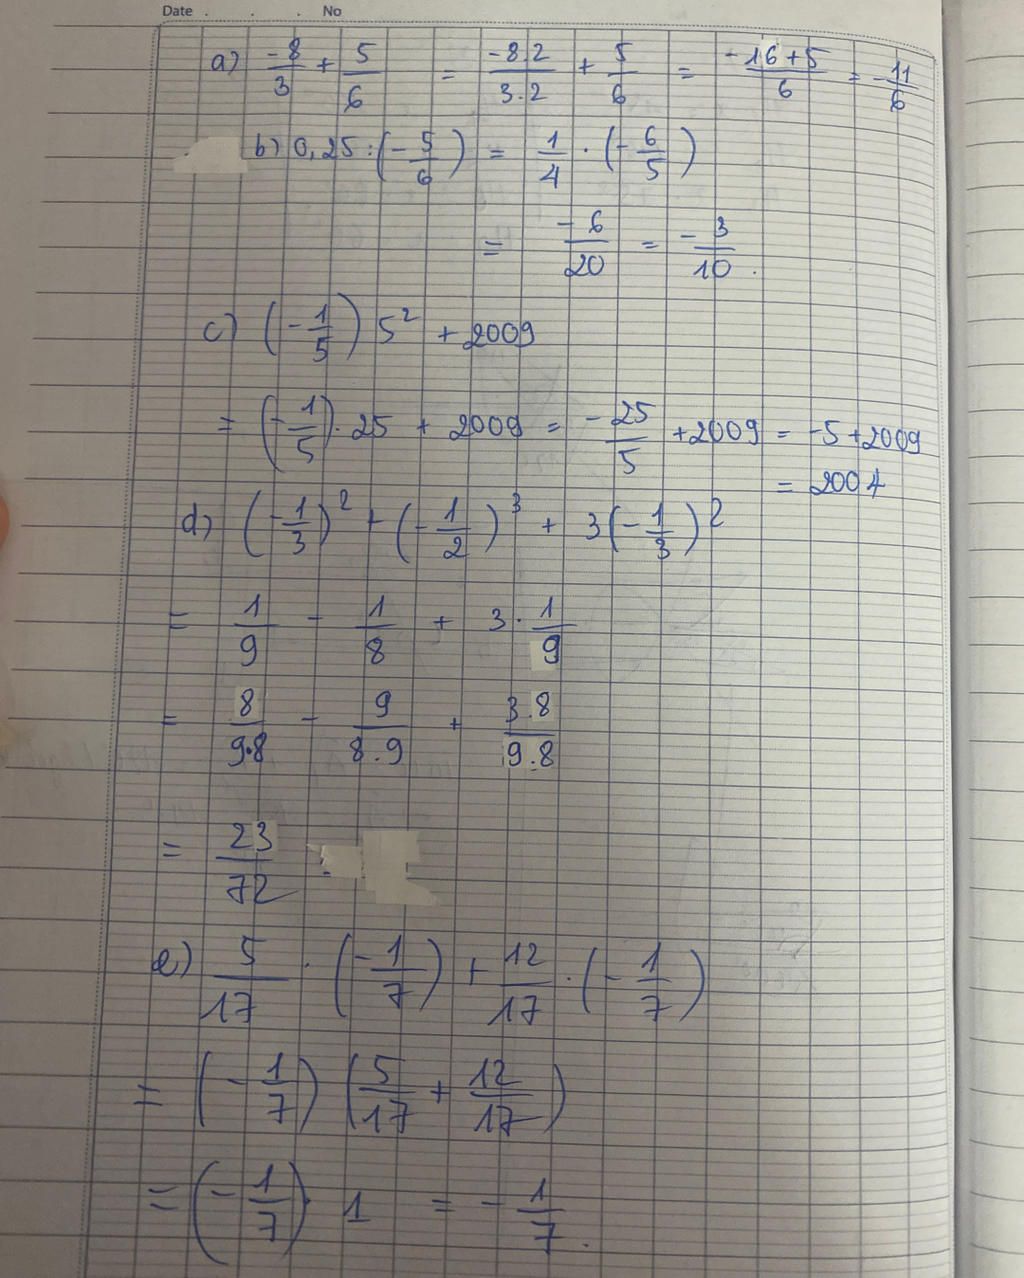 Date . . . No
a) -8/3 + 5/6 = -8.2/3.2 + 5/6 = -16+5/6 = -11/6
b) 0,25 : (-5/6) = 1/4 . (-6/5)
= -6/20 = -3/10 .
c) (-1/5) 5² + 2009
= (-1/5) . 25 + 2009 = -25/5 + 2009 = -5 + 2009
= 2004
d) (-1/3)² + (-1/2)³ + 3(-1/3)²
= 1/9 - 1/8 + 3 . 1/9
= 8/9.8 - 9/8.9 + 3.8/9.8
= 23/72 .
e) 5/17 . (-1/7) + 12/17 . (-1/7)
= (-1/7) (5/17 + 12/17)
= (-1/7) . 1 = -1/7 .